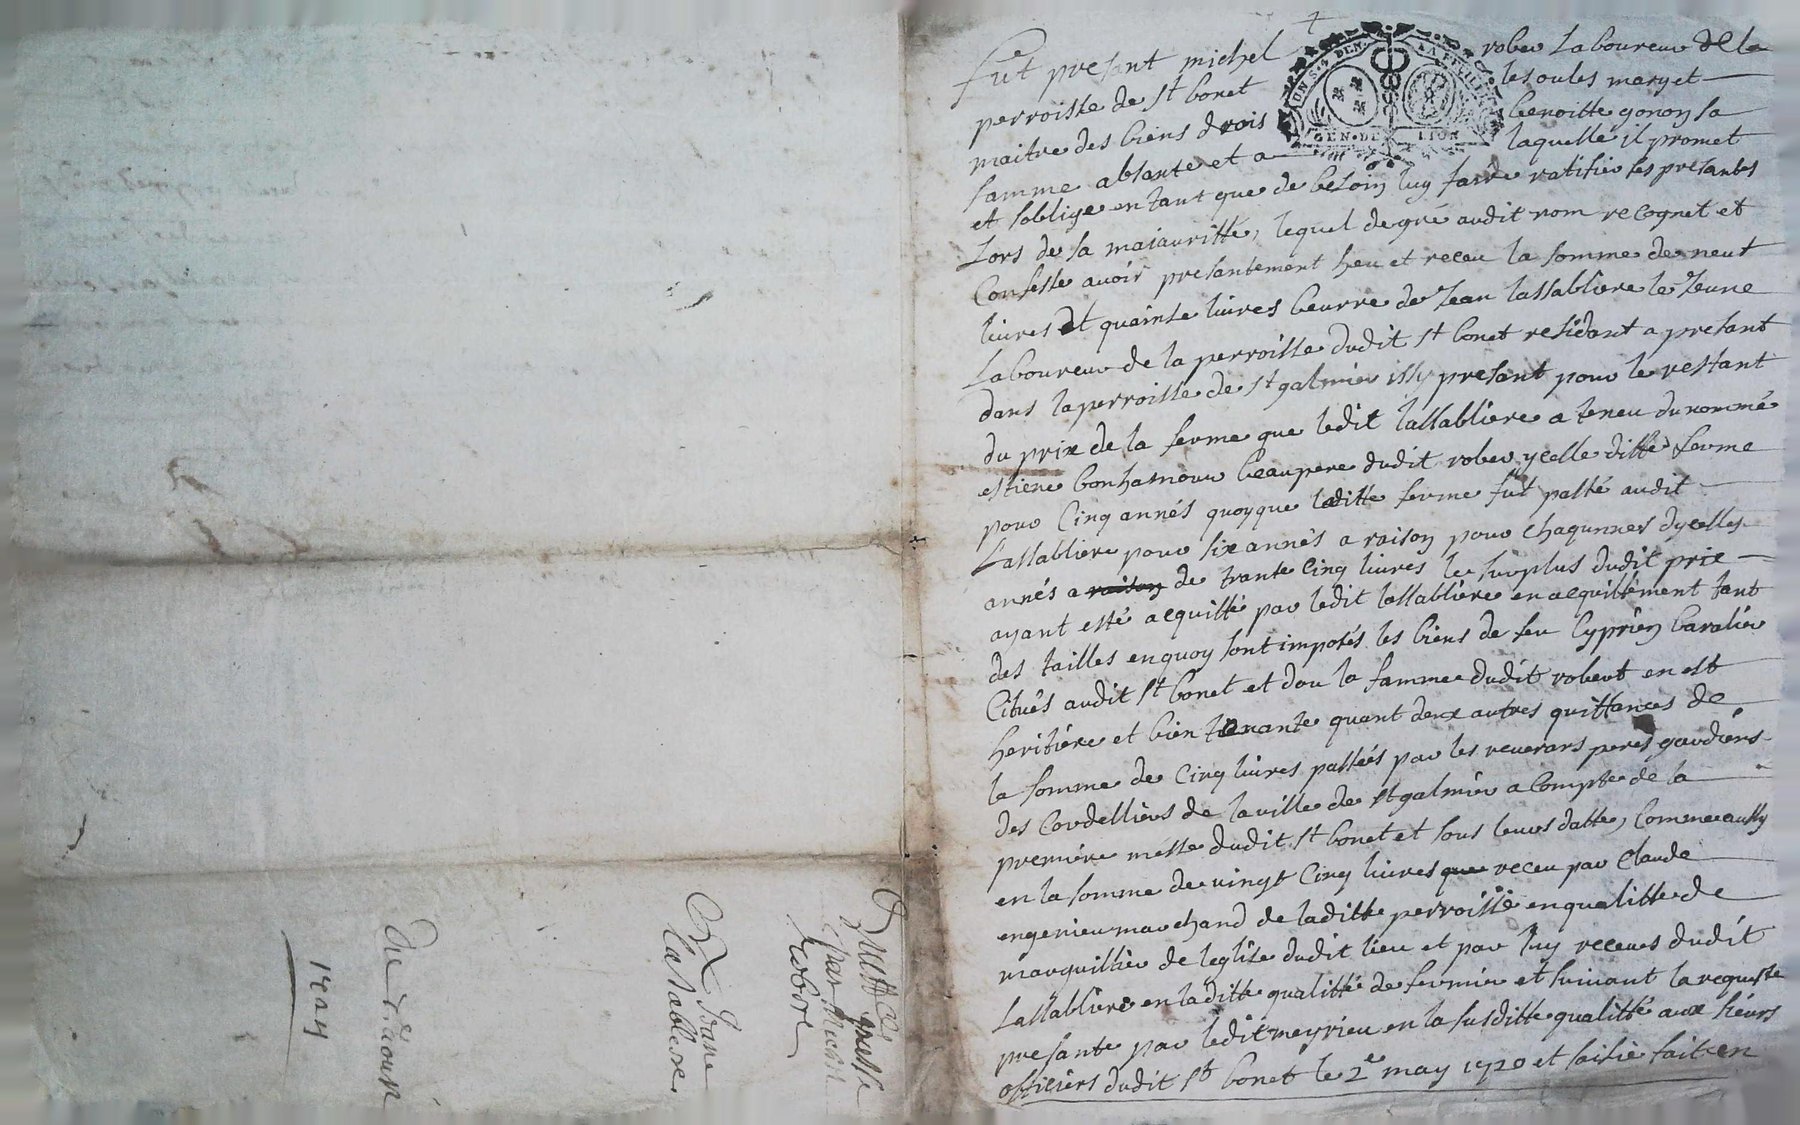 fut presant michel rober Laboureur de la
perroisse de st bonet les oules mary et
maitre des biens drois benoitte gonon sa
famme absante et a laquelle il promet
et soblige en tant que de besoin luy faire ratifier les presantes
Lors de sa majauritté, lequel de gré audit nom recognet et
Confesse auoir presantement heu et receu la somme de neut
liures et quainse liures beurre de Jean lassabliere le Jeune
Laboureur de la perroisse dudit st bonet residant a presant
dans la perroisse de st galmier issy presant pour le restant
du prix de la ferme que ledit lassabliere a teneu du nommé
estiene bonhamour beaupere dudit rober ycelle ditte ferme
pour Cinq annés quoyque laditte ferme fut passé audit
Lassabliere pour six annés a raison pour chaqunnes dycelles
annés a raison de trante Cinq liures le surplus dudit prix
ayant esté acquitté par ledit lassabliere en acquittement tant
des tailles en quoy sont imposés les biens de feu Cyprien baralier
Citués audit st bonet et dou la famme dudit robert en est
heritiere et bien tenante quant deux autres quittances de
la somme de Cinq liures passées par les reuerans peres gardiens
des Cordelliers de la ville de st galmier a Compte de la
premiere messe dudit st bonet et sous leurs datte, Comme aussy
en la somme de vingt Cinq liures que receu par Claude
engenieu marchand de laditte perroisse en qualitté de
marguillier de leglise dudit lieu et par luy receues dudit
Lassabliere en laditte qualitté de fermier et suiuant la requeste
presante par ledit meyrieu en la susditte qualitté aux sieurs
officiers dudit st bonet le 2e may 1720 et saisie fait en
GEN · DE LION
Quittce passé
par Michel
Robert
A Jeane
la Sabliere
1724